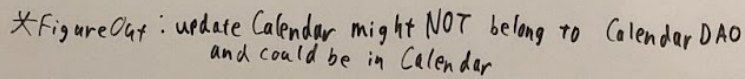 *FigureOut: update Calendar might NOT belong to Calendar DAO
and could be in Calendar